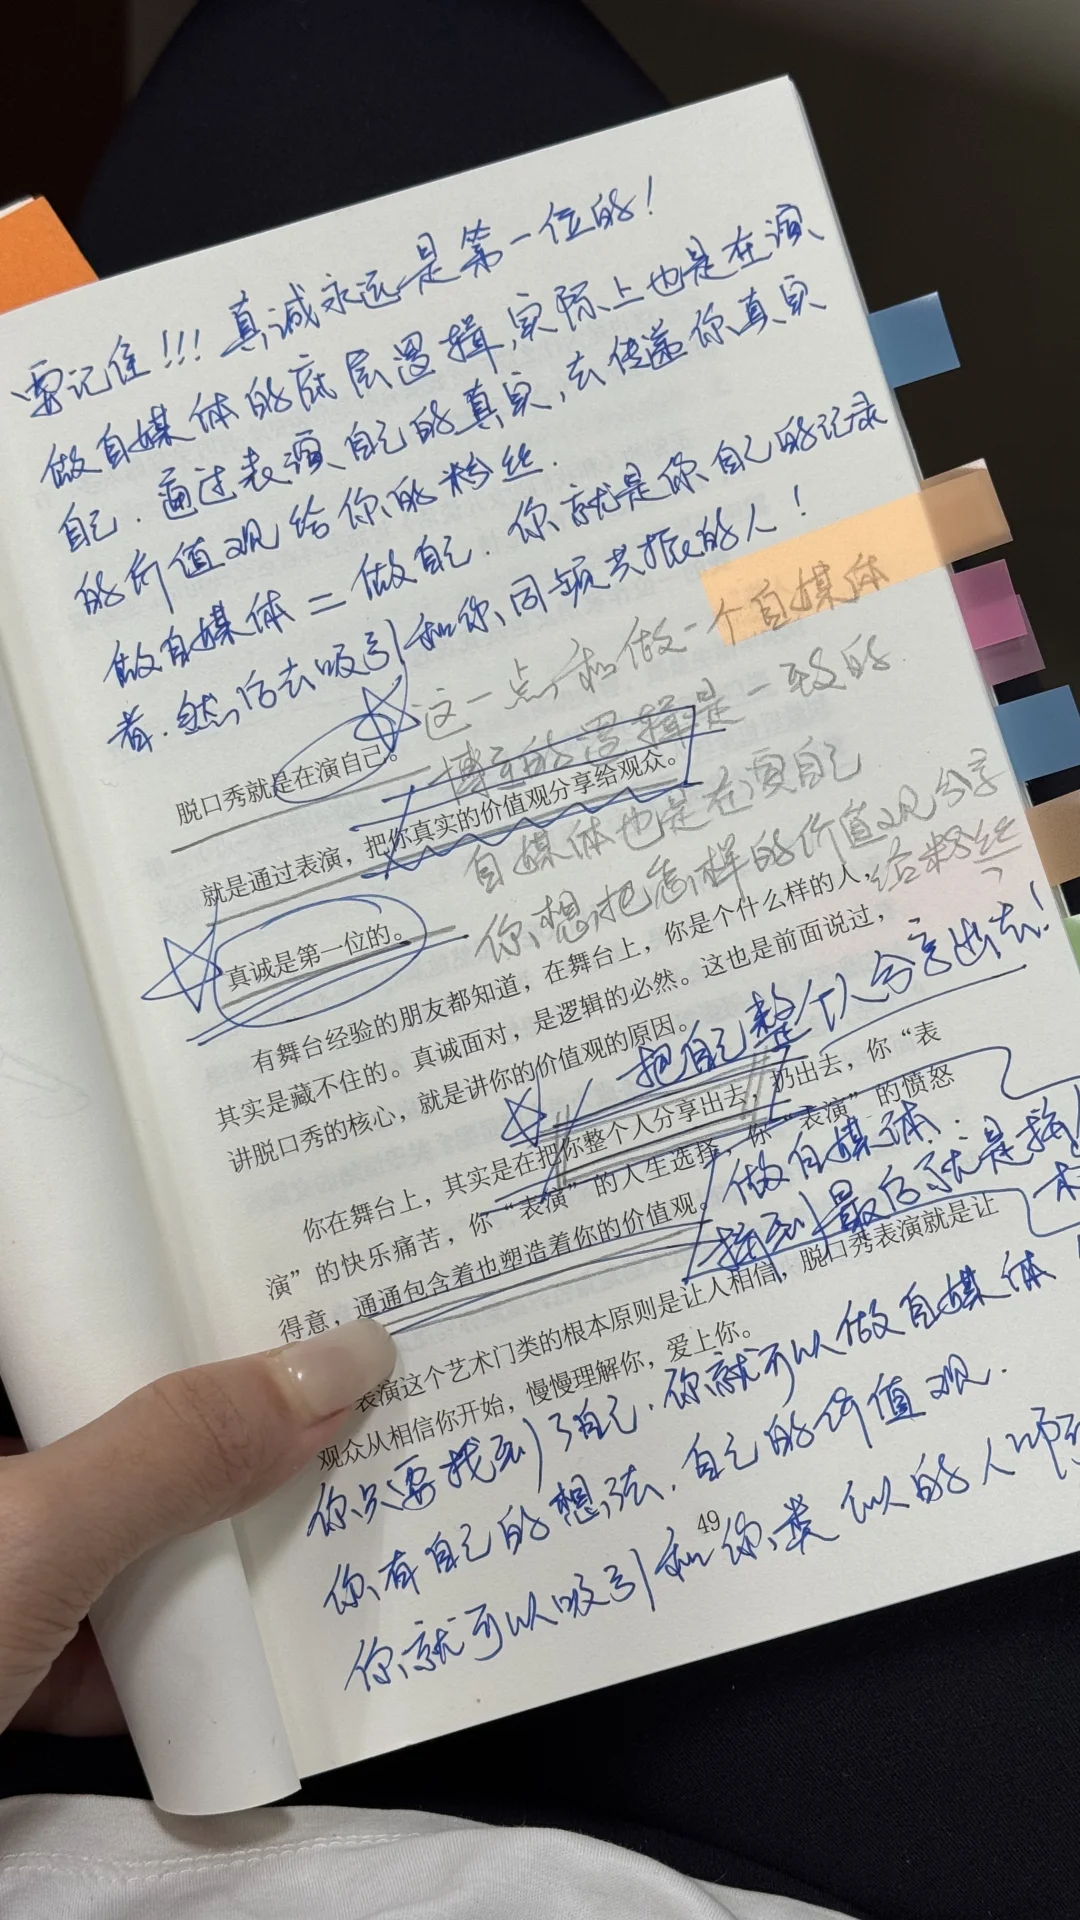 要记住!!! 真诚永远是第一位的!
做自媒体的底层逻辑,实际上也是在演
自己.通过表演自己的真实,去传递你真实
的价值观给你的粉丝.
做自媒体=做自己.你就是你自己的记录
者.然后去吸引和你同频共振的人!
这一点,和做一个自媒体
博主的逻辑是一致的.
脱口秀就是在演自己。
就是通过表演,把你真实的价值观分享给观众。
自媒体也是在演自己
你想把怎样的价值观分享
给粉丝
真诚是第一位的。
有舞台经验的朋友都知道,在舞台上,你是个什么样的人,
其实是藏不住的。真诚面对,是逻辑的必然。这也是前面说过,
讲脱口秀的核心,就是讲你的价值观的原因。
把自己整个人分享出去!
你在舞台上,其实是在把你整个人分享出去,扔出去,你“表
演”的快乐痛苦,你“表演”的人生选择,你“表演”的愤怒
得意,通通包含着也塑造着你的价值观。
做自媒体.
最后就是
表演这个艺术门类的根本原则是让人相信,脱口秀表演就是让
观众从相信你开始,慢慢理解你,爱上你。
你只要找到了自己.你就可以做自媒体
你有自己的想法.自己的价值观.
你就可以吸引和你类似的人
49